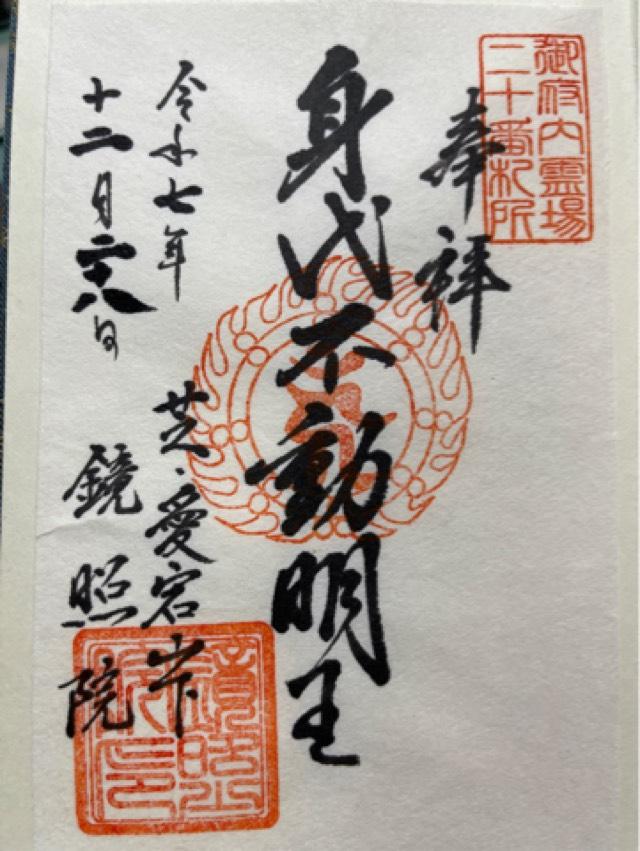 御府内霊場
二十番札所
奉拝
身代不動明王
令和七年
十二月二十八日
芝・愛宕山下
鏡照院
鏡照
院印